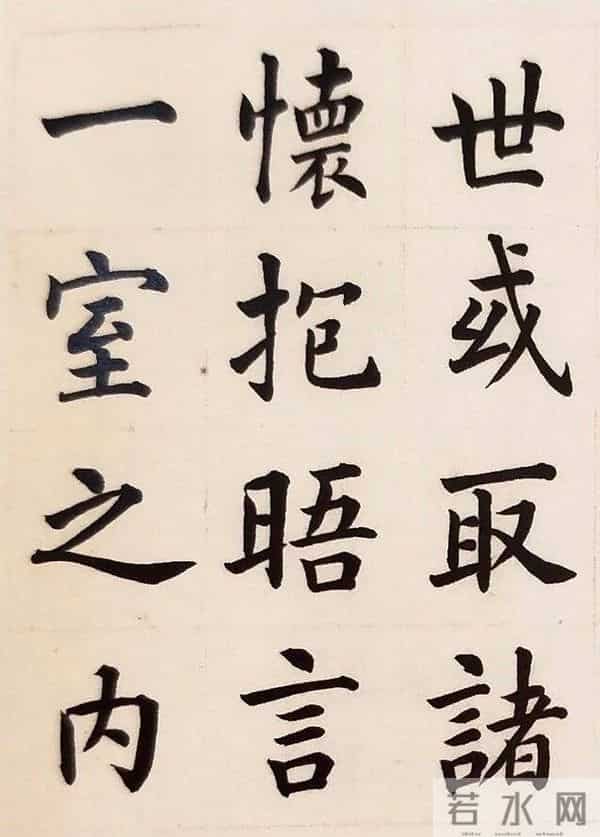 世或取諸
懷抱晤言
一室之内
若水网